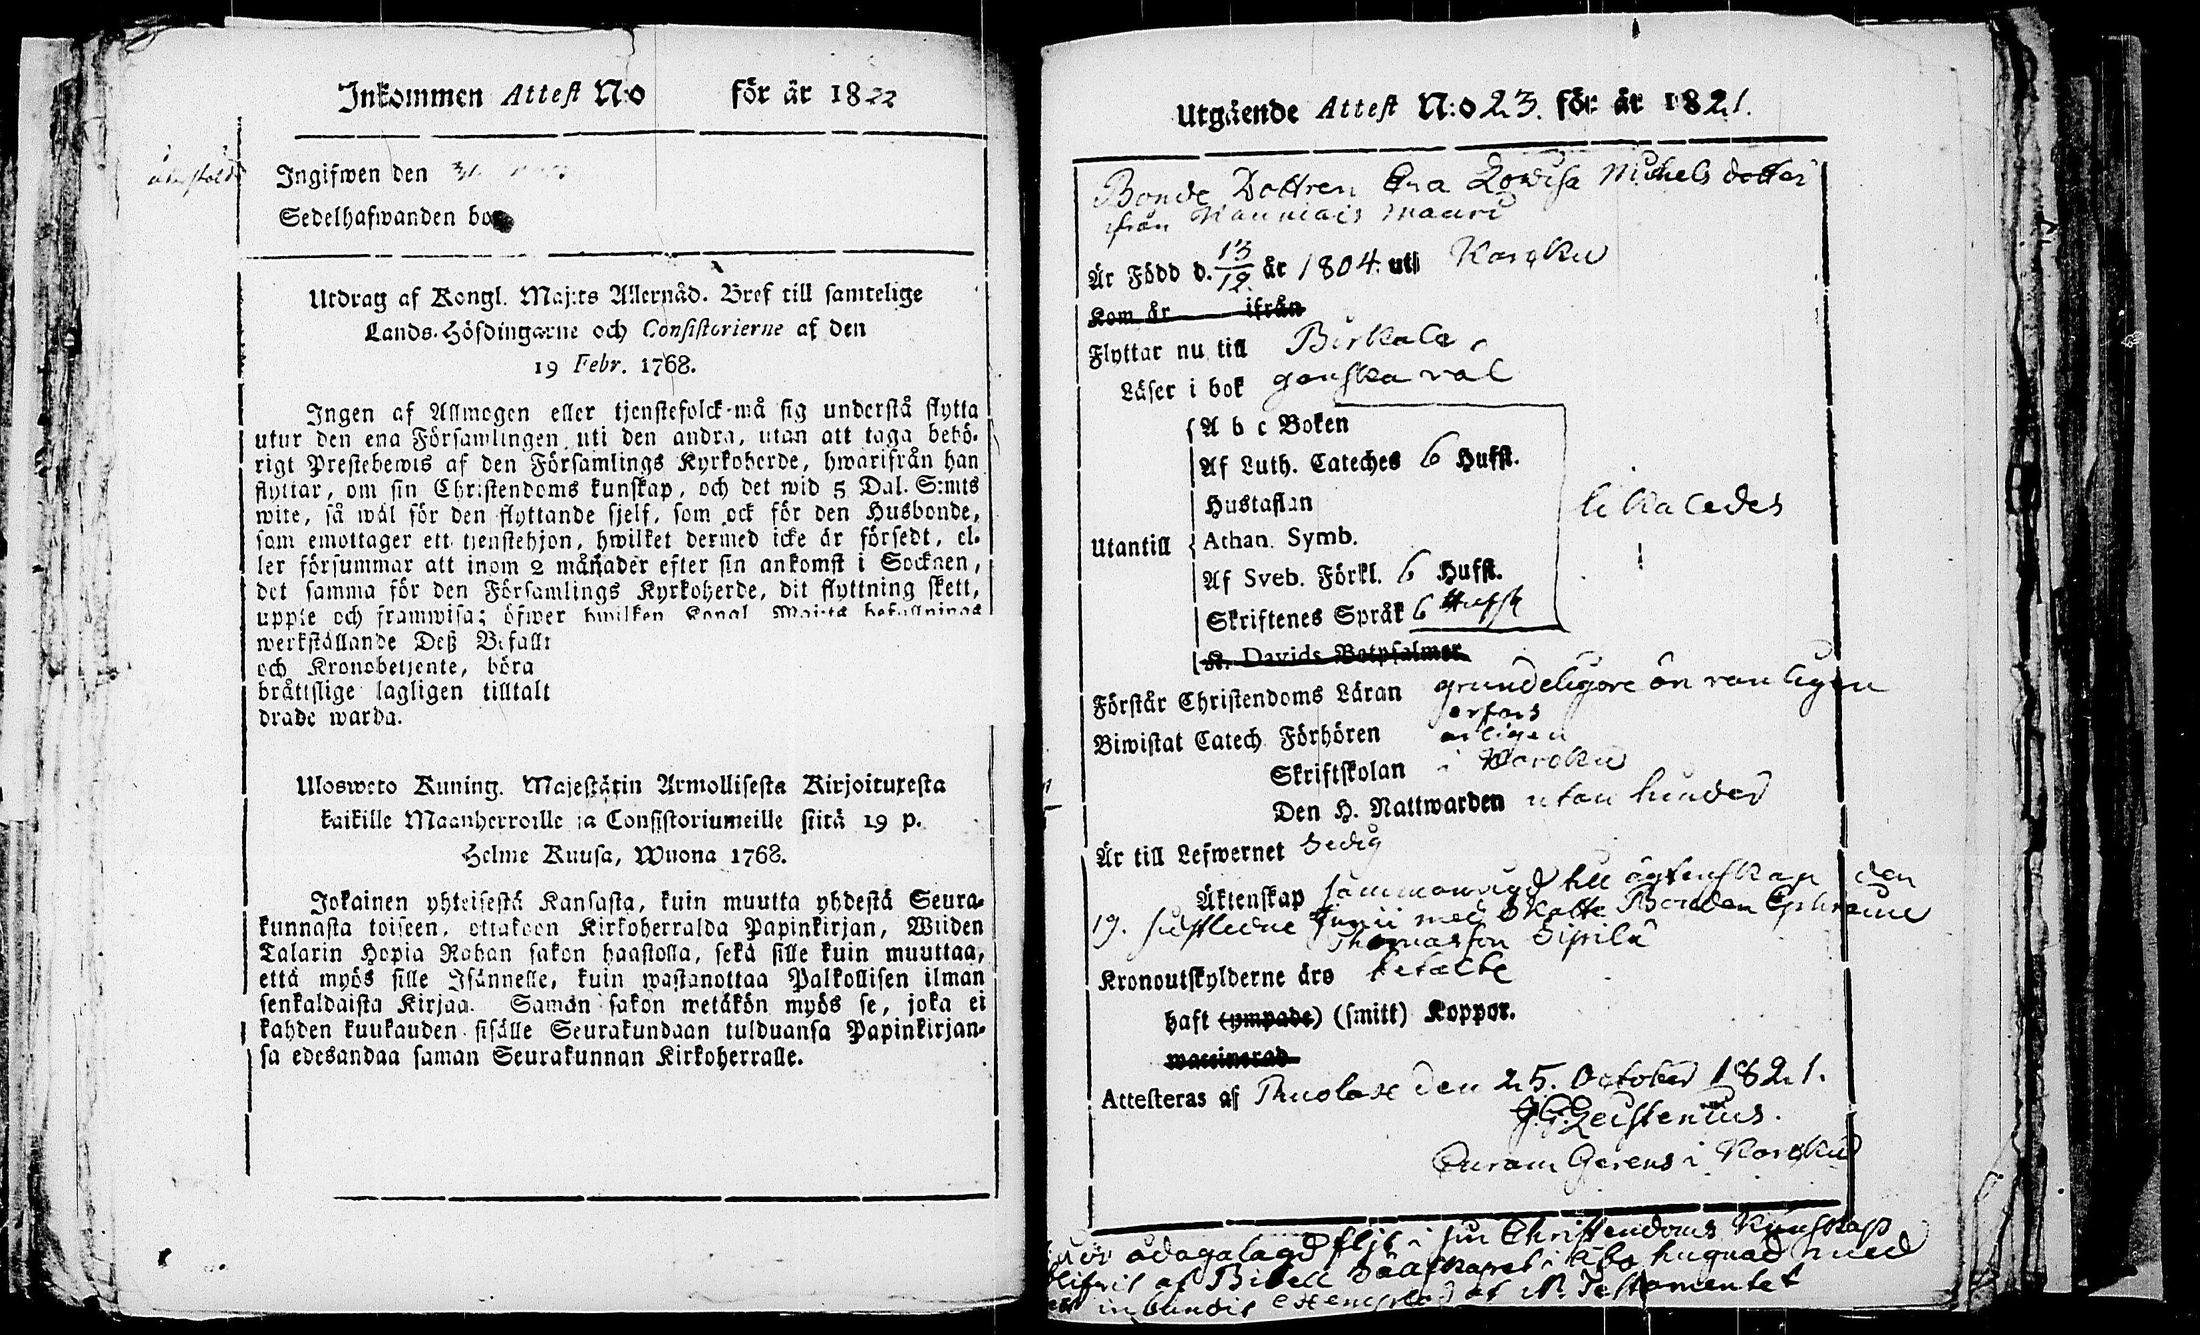 Inkommen Attest N:o för år 1822
Ingifwen den
Sedelhafwanden bo
Utdrag af Kongl. Maj:ts Allernåd. Bref till samtelige
Lands-Höfdingarne och Consistorierne af den
19 Febr. 1768.
Ingen af Allmogen eller tjenstefolck må sig understå flytta
utur den ena Församlingen uti den andra, utan att taga behö-
rigt Prestebewis af den Församlings Kyrkoherde, hwarifrån han
flyttar, om sin Christendoms kunskap, och det wid 5 Dal. S:mts
wite, så wäl för den flyttande sjelf, som ock för den Husbonde,
som emottager ett tjenstehjon, hwilket dermed icke är försedt, el-
ler försummar att inom 2 månader efter sin ankomst i Socknen,
det samma för den Församlings Kyrkoherde, dit flyttning skett,
uppte och framwisa; öfwer hwilken Kongl. Maj:ts befallnings
werkställande Deß Befallt
och Kronobetjente, böra
bråttslige lagligen tilltalt
drade warda.
Ulosweto Kuning. Majestätin Armollisesta Kirjoituxesta
kaikille Maanherroille ja Consistoriumeille siitä 19 p.
Helme Kuusa, Wuona 1768.
Jokainen yhteisestä Kansasta, kuin muutta yhdestä Seura-
kunnasta toiseen, ottakoon Kirkoherralda Papinkirjan, Wiiden
Talarin Hopia Rahan sakon haastolla, sekä sille kuin muuttaa,
että myös sille Isännelle, kuin wastanottaa Palkollisen ilman
senkaldaista Kirjaa. Saman sakon wetäkön myös se, joka ei
kahden kuukauden sisälle Seurakundaan tulduansa Papinkirjan-
sa edesandaa saman Seurakunnan Kirkoherralle.
Utgående Attest N:o 23. för år 1821.
Bonde Dottren Eva Lovisa Michels dotter
från Mauri
Är Född d. 13/12 år 1804. uti Karkku
Kom år ifrån
Flyttar nu till Birkala
Läser i bok ganska väl
A b c Boken
Af Luth. Cateches 6 Hufst.
Hustaflan
likaledes
Utantill Athan. Symb.
Af Sveb. Förkl. 6 Hufst.
Skriftenes Språk 6 Hufst
K. Davids Botpsalmer
Förstår Christendoms Läran grundeligare än vanligen
Biwistat Catech. Förhören årligen
Skriftskolan i Karkku
Den H. Nattwarden utan hinder
Är till Lefwernet Sedig
Äktenskap sammanvigd till ägtenskap den
19. sistledne Junii med Skatte Bonden Ephraim
Thomasson Sipilä
Kronoutskylderne äro betalte
haft (ympade) (smitt) Koppor.
waccinerad
Attesteras af den 25. October 1821.
Curam Gerens i Karkku
ådagalagd flit i sin Christendoms Kunskap
af Bibel Sällskapet i Åbo hugnad med
inbundit exemplar af N. Testamentet